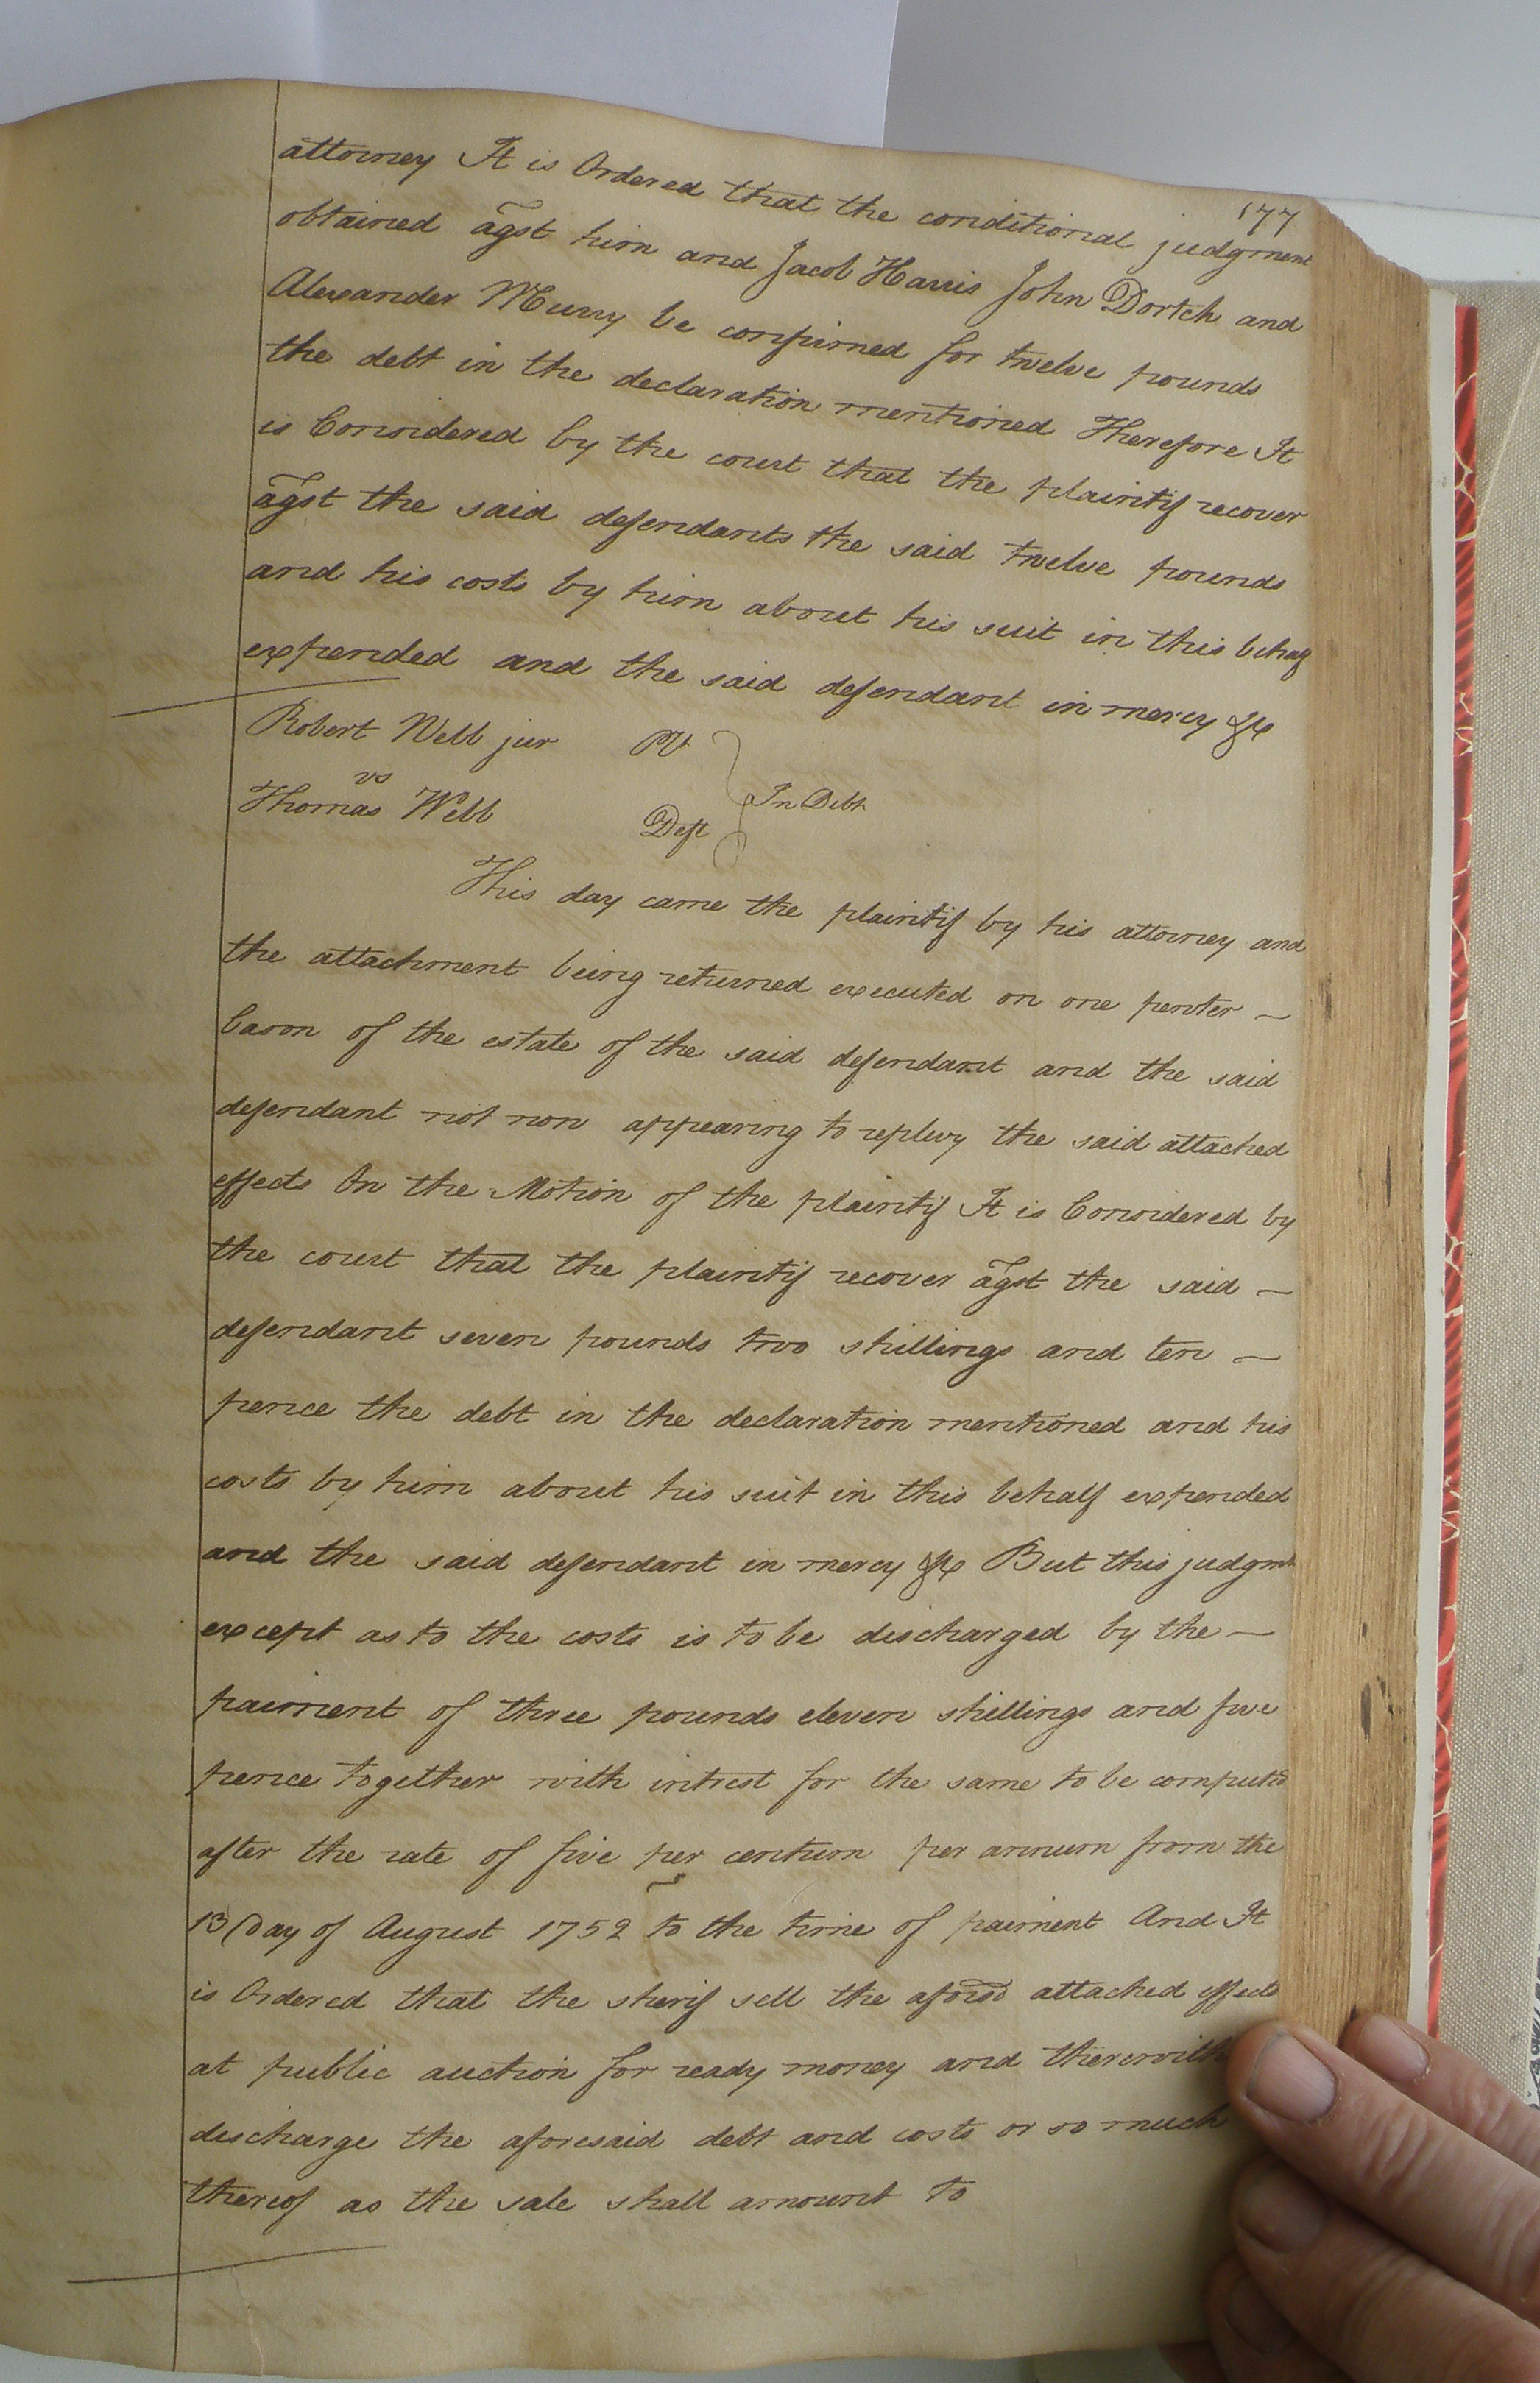 177
attorney It is Ordered that the conditional judgment
obtained agst him and Jacob Harris John Dortch and
Alexander Murry be confirmed for twelve pounds
the debt in the declaration mentioned Therefore It
is Considered by the court that the plaintif recover
agst the said defendants the said twelve pounds
and his costs by him about his suit in this behalf
expended and the said defendant in mercy &c
Robert Webb jur Plt
vs
In Debt
Thomas Webb Deft
This day came the plaintif by his attorney and
the attachment being returned executed on one pewter —
bason of the estate of the said defendant and the said
defendant not now appearing to replevy the said attached
effects On the Motion of the plaintif It is Considered by
the court that the plaintif recover agst the said —
defendant seven pounds two shillings and ten —
pence the debt in the declaration mentioned and his
costs by him about his suit in this behalf expended
and the said defendant in mercy &c But this judgmt
except as to the costs is to be discharged by the —
paiment of three pounds eleven shillings and five
pence together with intrest for the same to be computed
after the rate of five per centum per annum from the
13 Day of August 1752 to the time of paiment And It
is Ordered that the sherif sell the aforsd attached effects
at public auction for ready money and therewith
discharge the aforesaid debt and costs or so much
thereof as the sale shall amount to